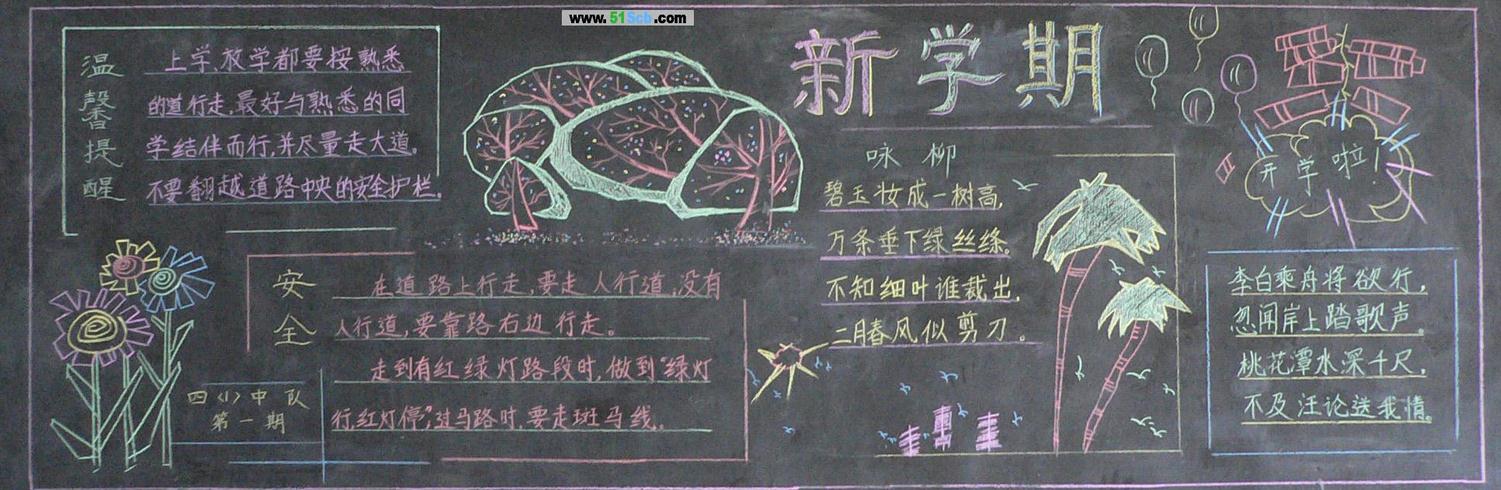 www.51Scb.com
新学期
温馨提醒
上学、放学都要按熟悉
的道行走,最好与熟悉的同
学结伴而行,并尽量走大道。
不要翻越道路中央的安全护栏。
安全
在道路上行走,要走人行道,没有
人行道,要靠路右边行走。
走到有红绿灯路段时,做到“绿灯
行,红灯停”,过马路时,要走斑马线。
四〈1〉中队
第一期
咏柳
碧玉妆成一树高,
万条垂下绿丝绦。
不知细叶谁裁出,
二月春风似剪刀。
开学啦!
李白乘舟将欲行,
忽闻岸上踏歌声。
桃花潭水深千尺,
不及汪论送我情。